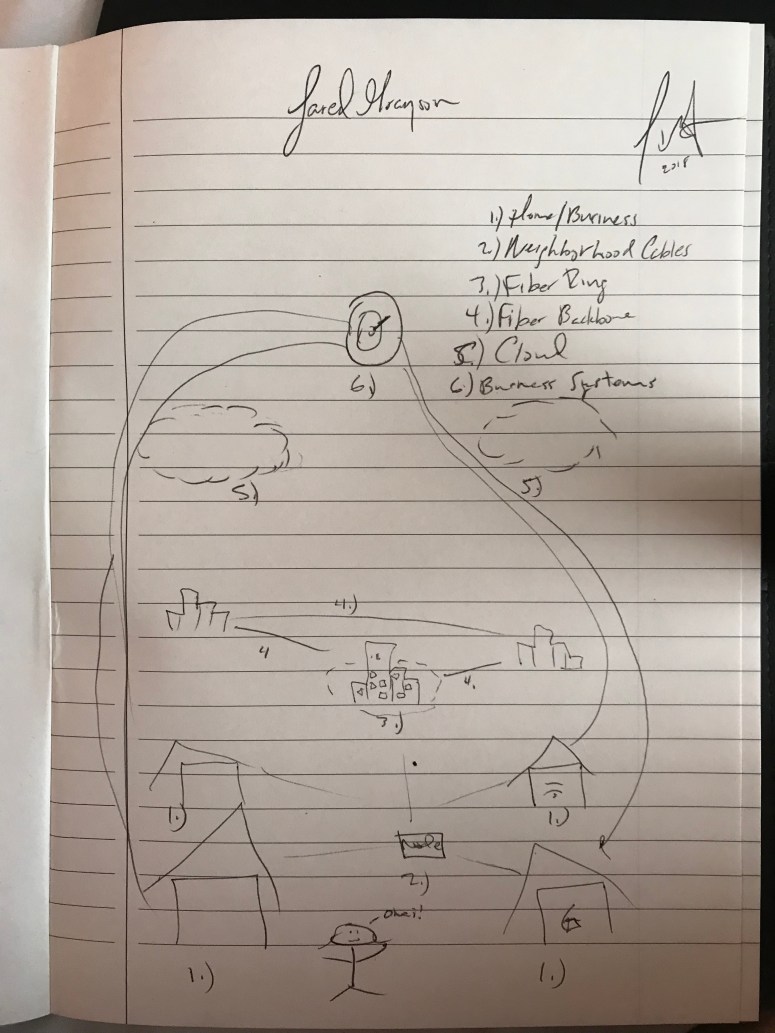 Jared Grayson
2018
1.) Home/Business
2.) Neighborhood Cables
3.) Fiber Ring
4.) Fiber Backbone
5.) Cloud
6.) Business Systems
6.)
5.)
5.)
4.)
4
4.
3.)
1.)
1.)
Node
2.)
ohai!
6
1.)
1.)